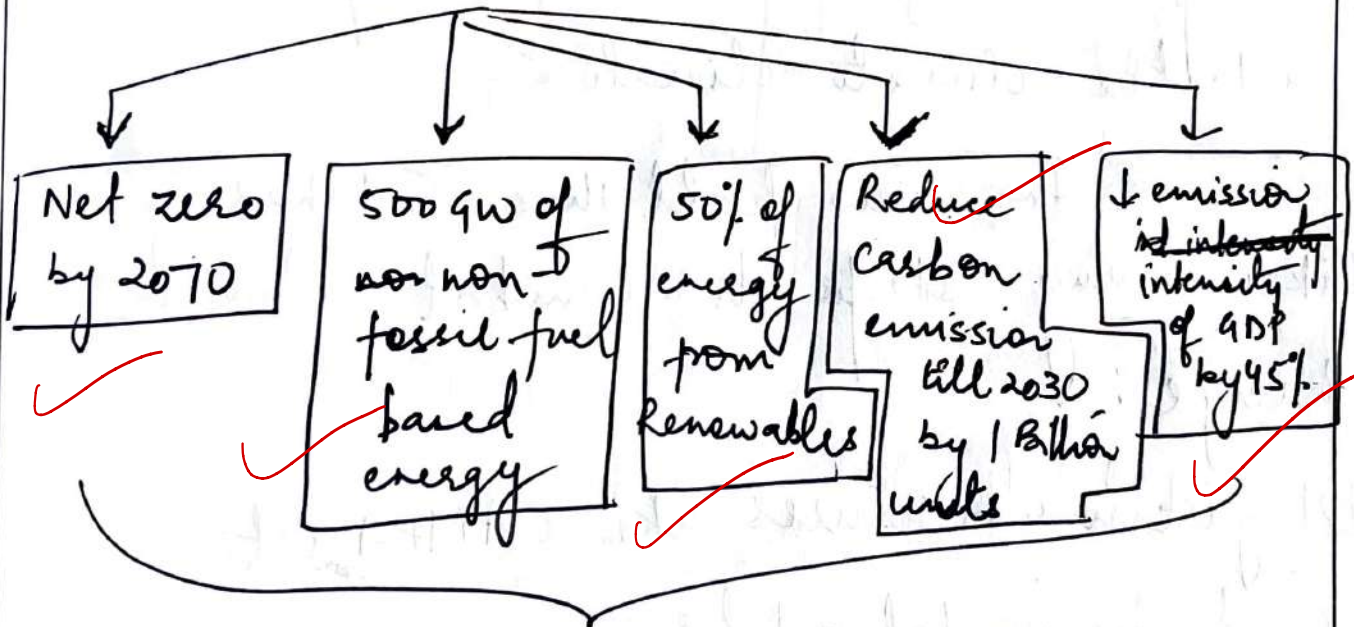 Net zero
by 2070
500 GW of
non non
fossil fuel
based
energy
50% of
energy
from
Renewables
Reduce
carbon
emission
till 2030
by 1 Billion
units
↓ emission
intensity
of GDP
by 45%